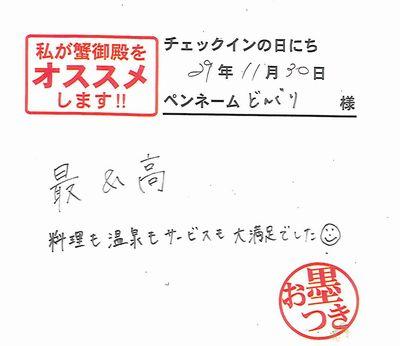 私が蟹御殿を
オススメ
します!!
チェックインの日にち
29年11月30日
ペンネーム どんぐり 様
最&高
料理も温泉もサービスも大満足でした☺
お墨つき